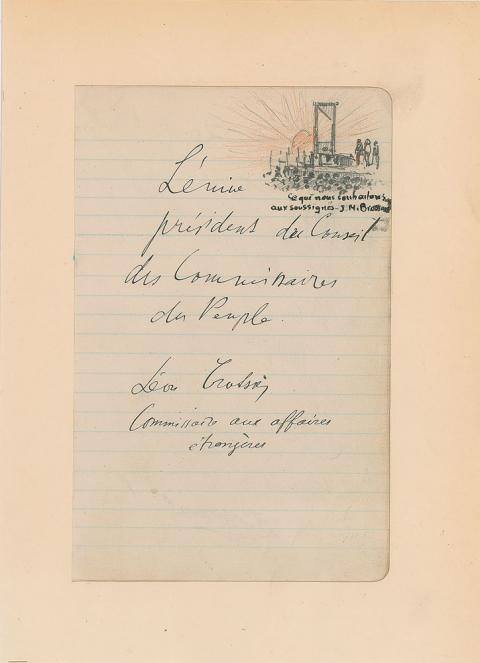 Ce que nous souhaitons
aux soussignés - J. N.
Lénine
président du Conseil
des Commissaires
du Peuple.
Léon Trotsky
Commissaire aux affaires
étrangères